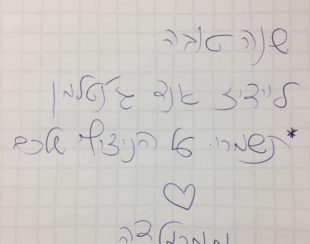 שנה טובה
ליידיז אנד ג'נטלמן
*תשמרו על הניצוץ שלכם
♡